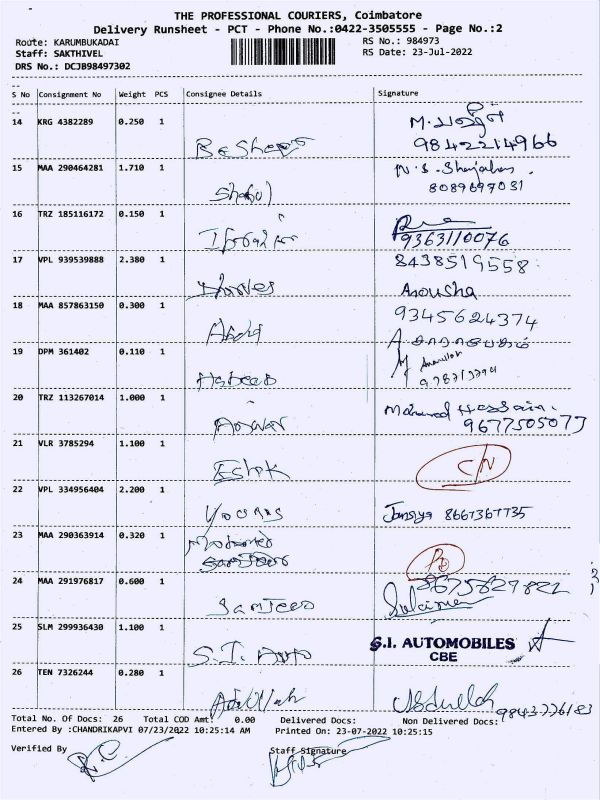 THE PROFESSIONAL COURIERS, Coimbatore
Delivery Runsheet - PCT - Phone No.:0422-3505555 - Page No.:2
Route: KARUMBUKADAI
RS No.: 984973
Staff: SAKTHIVEL
RS Date: 23-Jul-2022
DRS No.: DCJB98497302
S No Consignment No Weight PCS Consignee Details Signature
14 KRG 4382289 0.250 1
9842214966
15 MAA 290464281 1.710 1
8089697031
16 TRZ 185116172 0.150 1
9363110076
17 VPL 939539888 2.380 1 8438519558
Anousha
18 MAA 857863150 0.300 1 9345624374
19 DPM 361402 0.110 1
Habeeb
20 TRZ 113267014 1.000 1
Anwar Mohamed Hossain.
9677505077
21 VLR 3785294 1.100 1
C/N
22 VPL 334956404 2.200 1
Jansiya 8667367735
23 MAA 290363914 0.320 1
24 MAA 291976817 0.600 1 9675829822
25 SLM 299936430 1.100 1 S.I. AUTOMOBILES
S.I. Auto CBE
26 TEN 7326244 0.280 1
Abdullah Abdullah 9843776183
Total No. Of Docs: 26 Total COD Amt: 0.00 Delivered Docs: Non Delivered Docs:
Entered By :CHANDRIKAPVI 07/23/2022 10:25:14 AM Printed On: 23-07-2022 10:25:15
Verified By Staff Signature